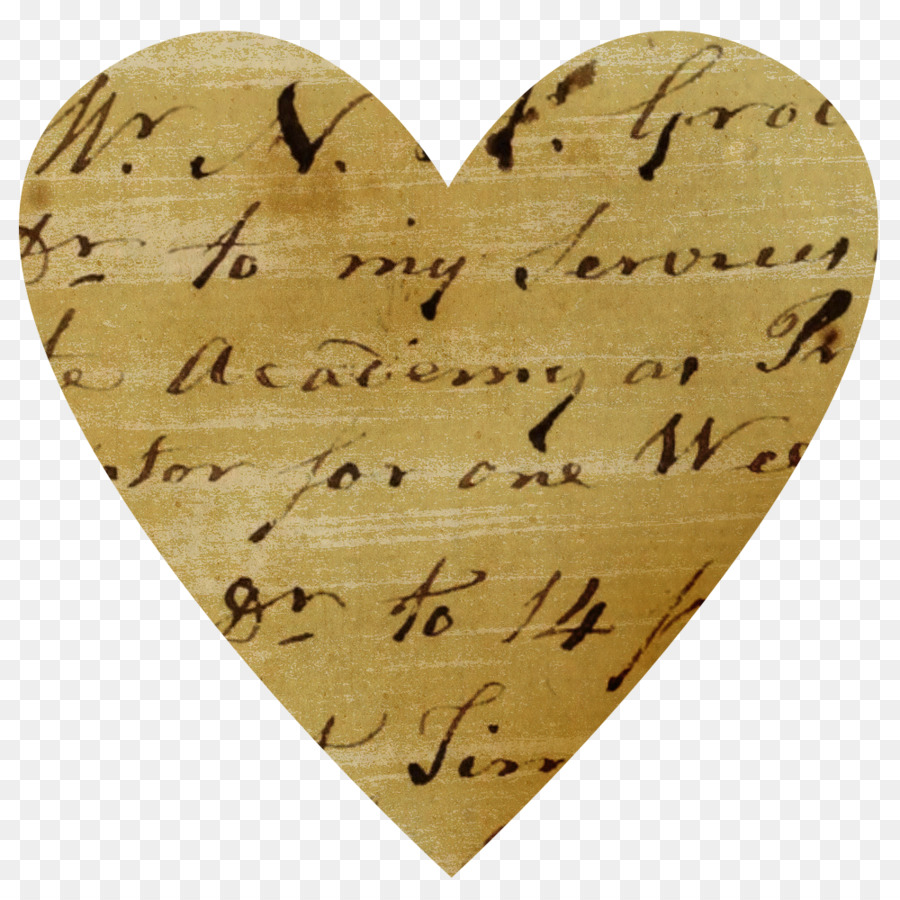 Mr. N. H. Groc
Dr to my Services
te Academy as Pr
ator for one Wee
Dr to 14
t Sim